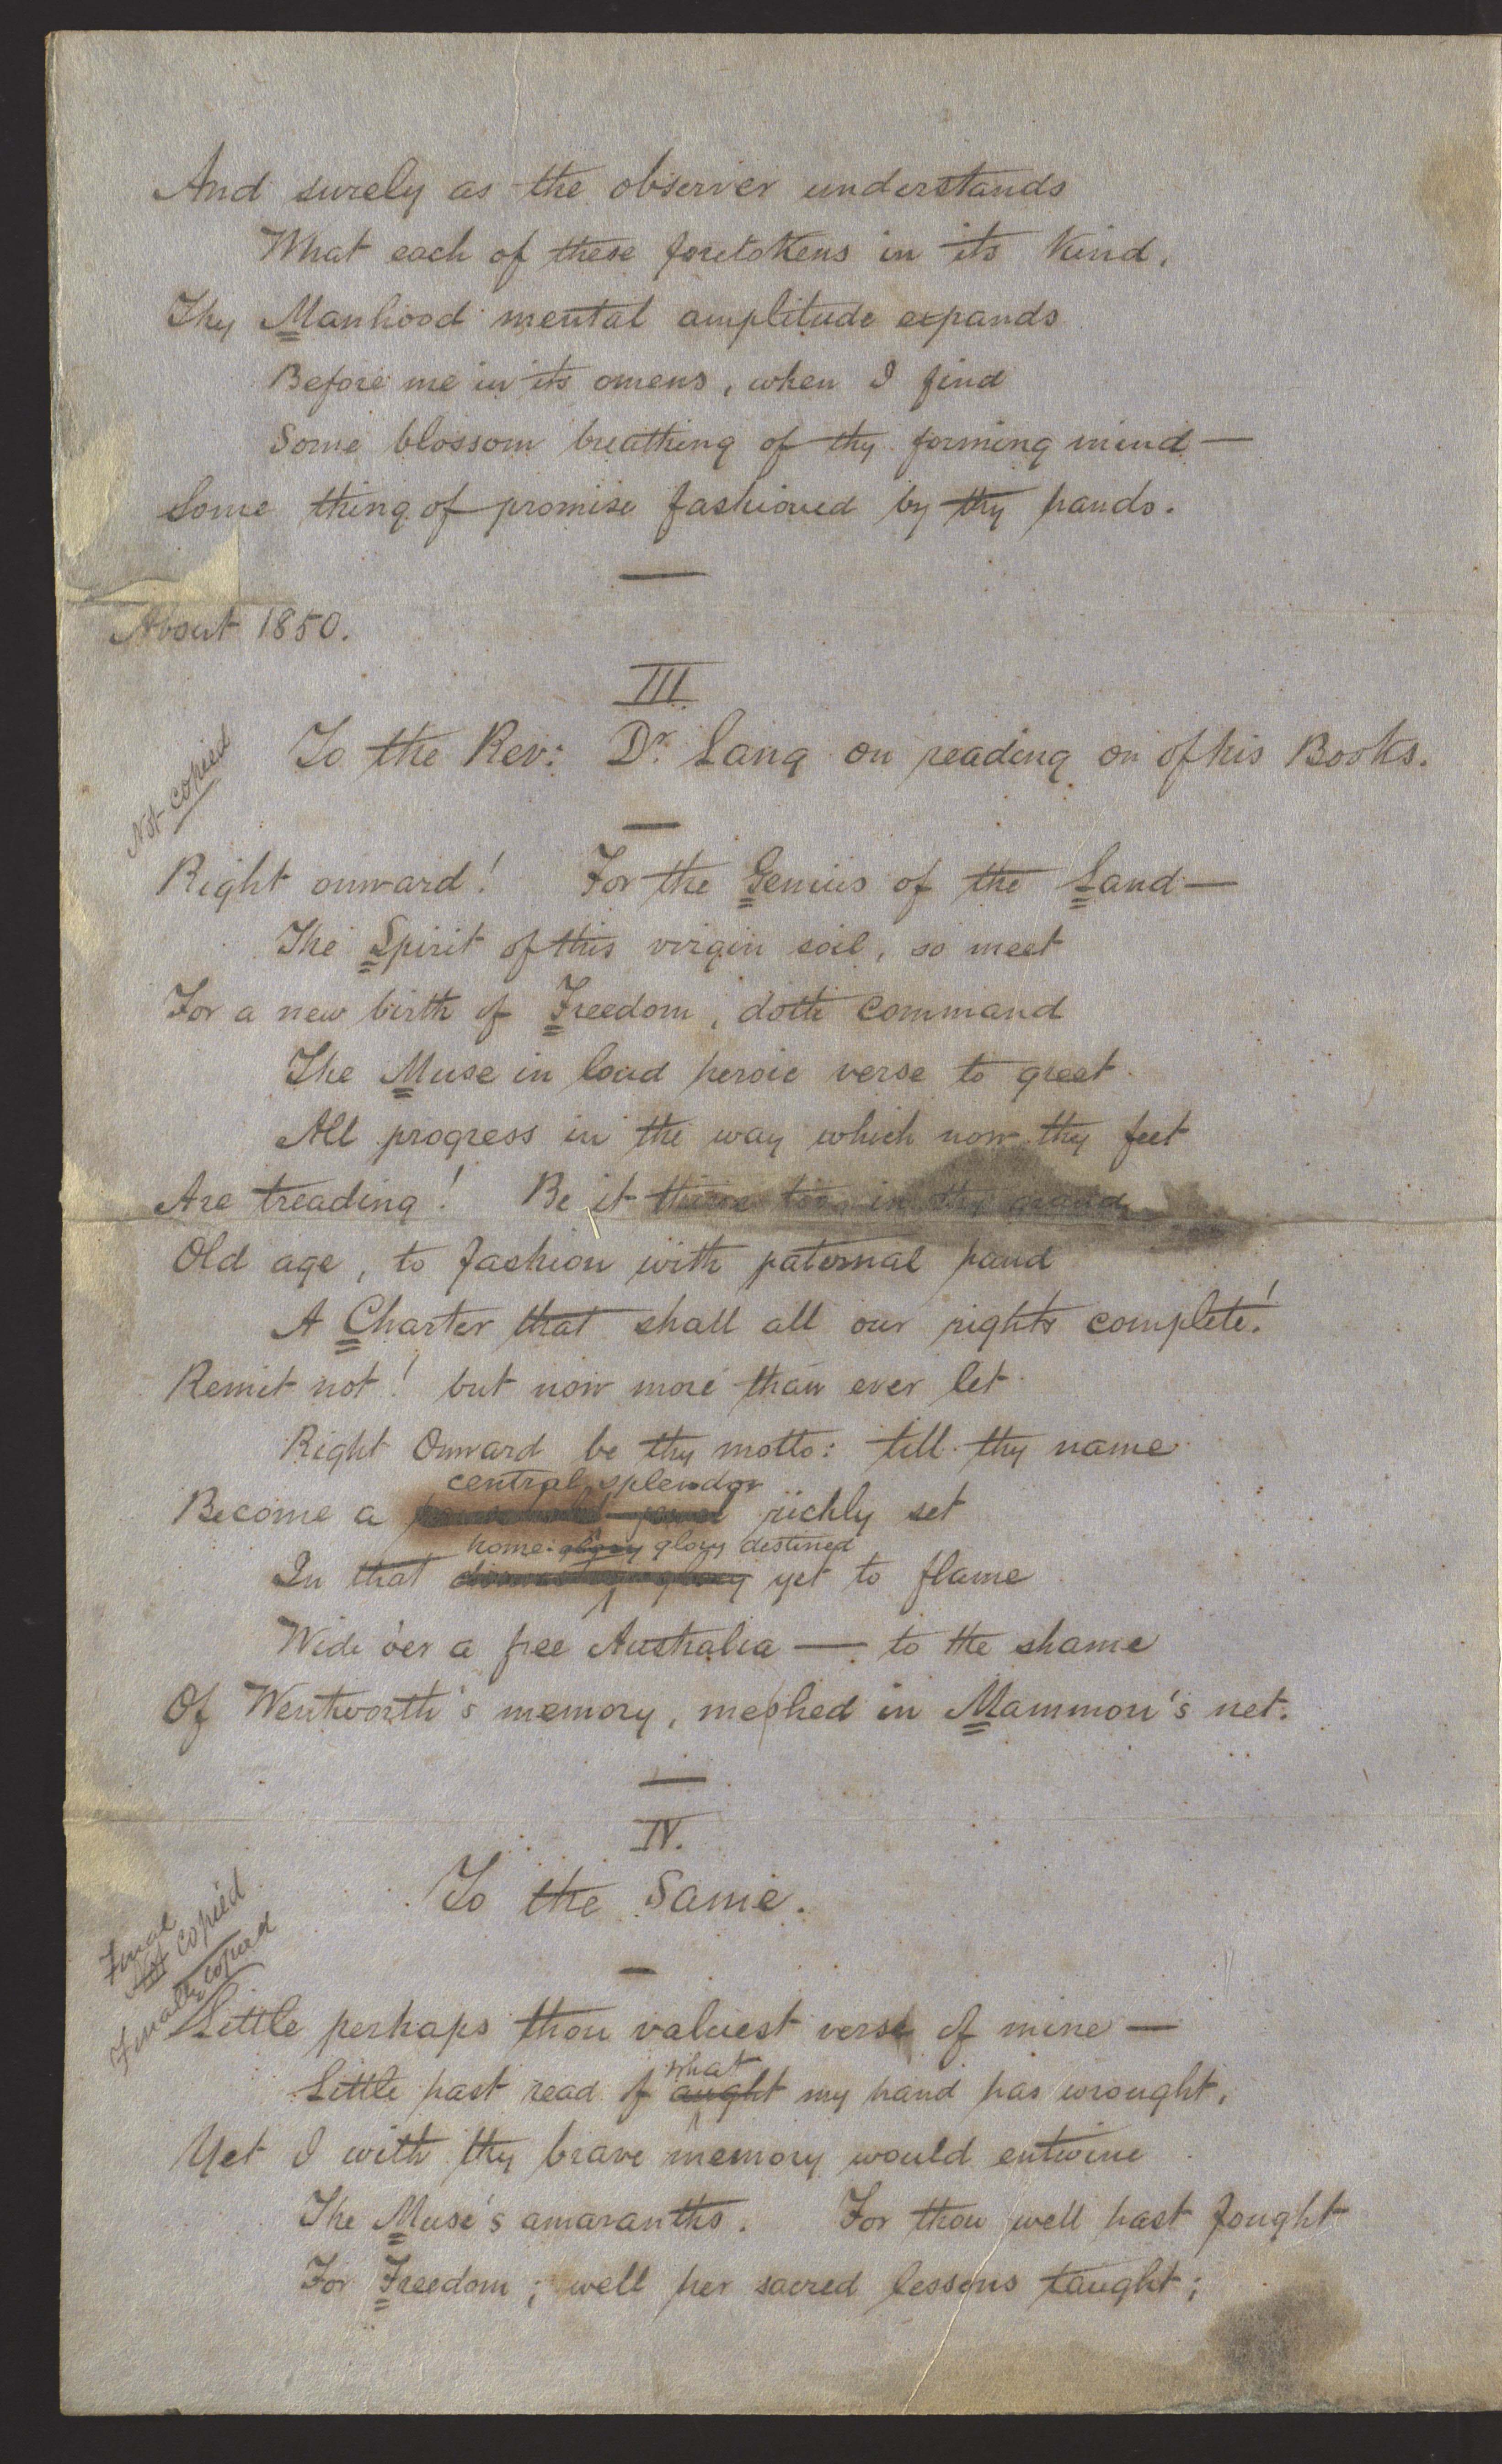 And surely as the observer understands
What each of these foretokens in its kind,
Thy Manhood mental amplitude expands
Before me in its omens, when I find
Some blossom breathing of thy forming mind —
Some thing of promise fashioned by thy hands.
About 1850.
III.
Not copied
To the Rev: Dr. Lang on reading on of his Books.
Right onward! For the Genius of the Land —
The Spirit of this virgin soil, so meet
For a new birth of Freedom, doth command
The Muse in loud heroic verse to greet
All progress in the way which now thy feet
Are treading! Be it thine too, in thy grand
Old age, to fashion with paternal hand
A Charter that shall all our rights complete!
Remit not! but now more than ever let
Right Onward be thy motto: till thy name
central splendor
Become a richly set
home glory glory destined
In that yet to flame
Wide o'er a free Australia — to the shame
Of Wentworth's memory, meshed in Mammon's net.
IV.
To the Same.
Final
Not copied
Finally copied
Little perhaps thou valuest verse of mine —
what
Little hast read of aught my hand has wrought,
Yet I with thy brave memory would entwine
The Muse's amaranths. For thou well hast fought
For Freedom; well her sacred lessons taught;